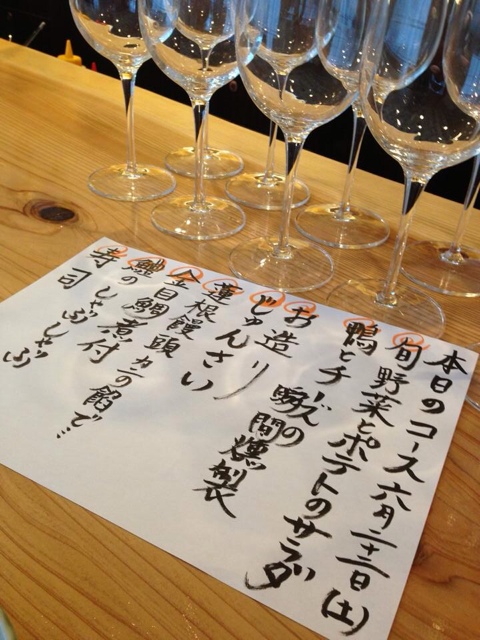 本日のコース 六月二十二日(土)
旬野菜とポテトのサラダ
鴨とチーズの瞬間燻製
お造り
じゅんさい
蓮根饅頭 カニの餡で…
金目鯛煮付
鱧のしゃぶしゃぶ
寿司